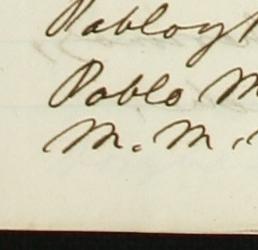 Pablo y
Pablo M
M. M.